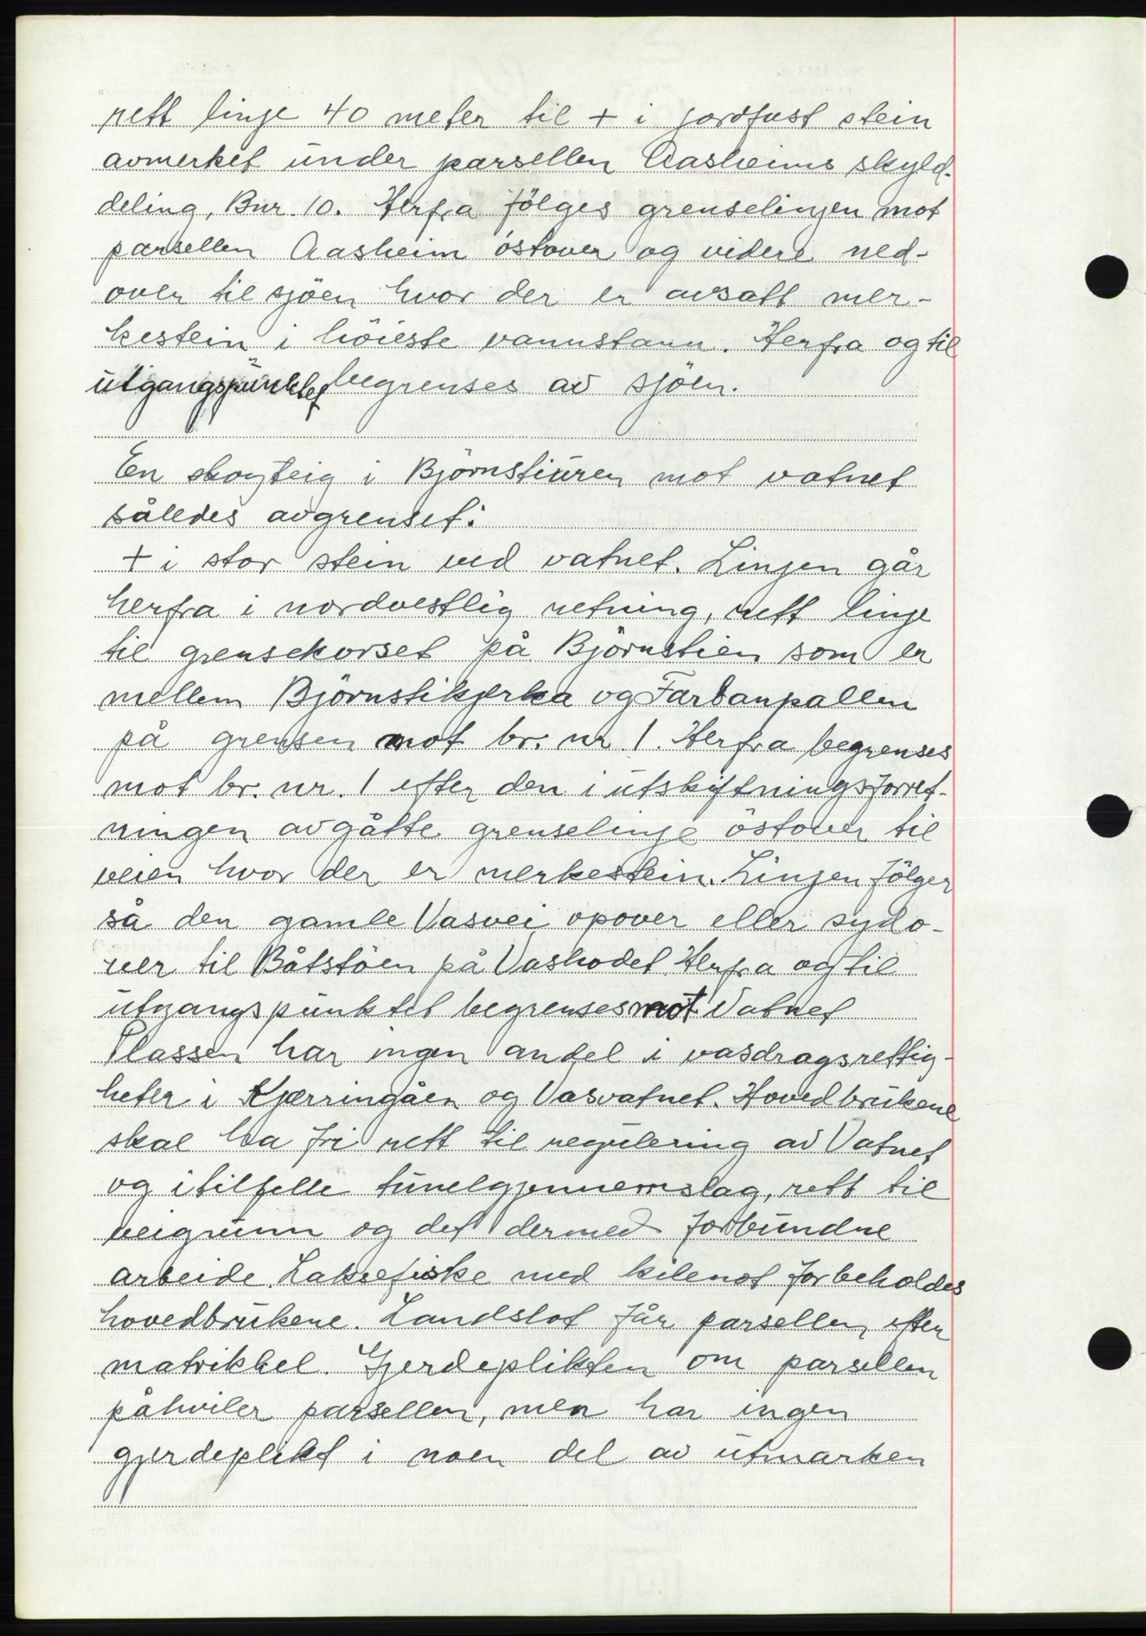 rett linje 40 meter til + i jordfast stein
avmerket under parsellen Aasheims skyld-
deling, Bnr. 10. Herfra fölges grenselinjen mot
parsellen Aasheim östover og videre ned-
over til sjöen hvor der er avsatt mer-
kestein i höieste vannstann. Herfra og til
utgangspunktet begrenses av sjöen.
En skogteig i Björnstiuren mot vatnet
således avgrenset:
+ i stor stein ved vatnet. Linjen går
herfra i nordvestlig retning, rett linje
til grensekorset på Björnstien som er
mellem Björnstikjerka og Farbanpallen
på grensen mot br. nr. 1. Herfra begrenses
mot br. nr. 1 efter den i utskiftningsforret-
ningen avgåtte grenselinje östover til
veien hvor der er merkestein. Linjen fölger
så den gamle Vasvei opover eller sydo-
ver til Båtstöen på Vashodet. Herfra og til
utgangspunktet begrenses mot Vatnet
Plassen har ingen andel i vasdragsrettig-
heter i Kjerringåen og Vasvatnet. Hovedbrukene
skal ha fri rett til regulering av Vatnet
og i tilfelle tunelgjennemslag, rett til
veigrunn og det dermed forbundne
arbeide. Laksefiske med kilenot forbeholdes
hovedbrukene. Landslot får parsellen efter
matrikkel. Gjerdeplikten om parsellen
påhviler parsellen, men har ingen
gjerdeplikt i noen del av utmarken